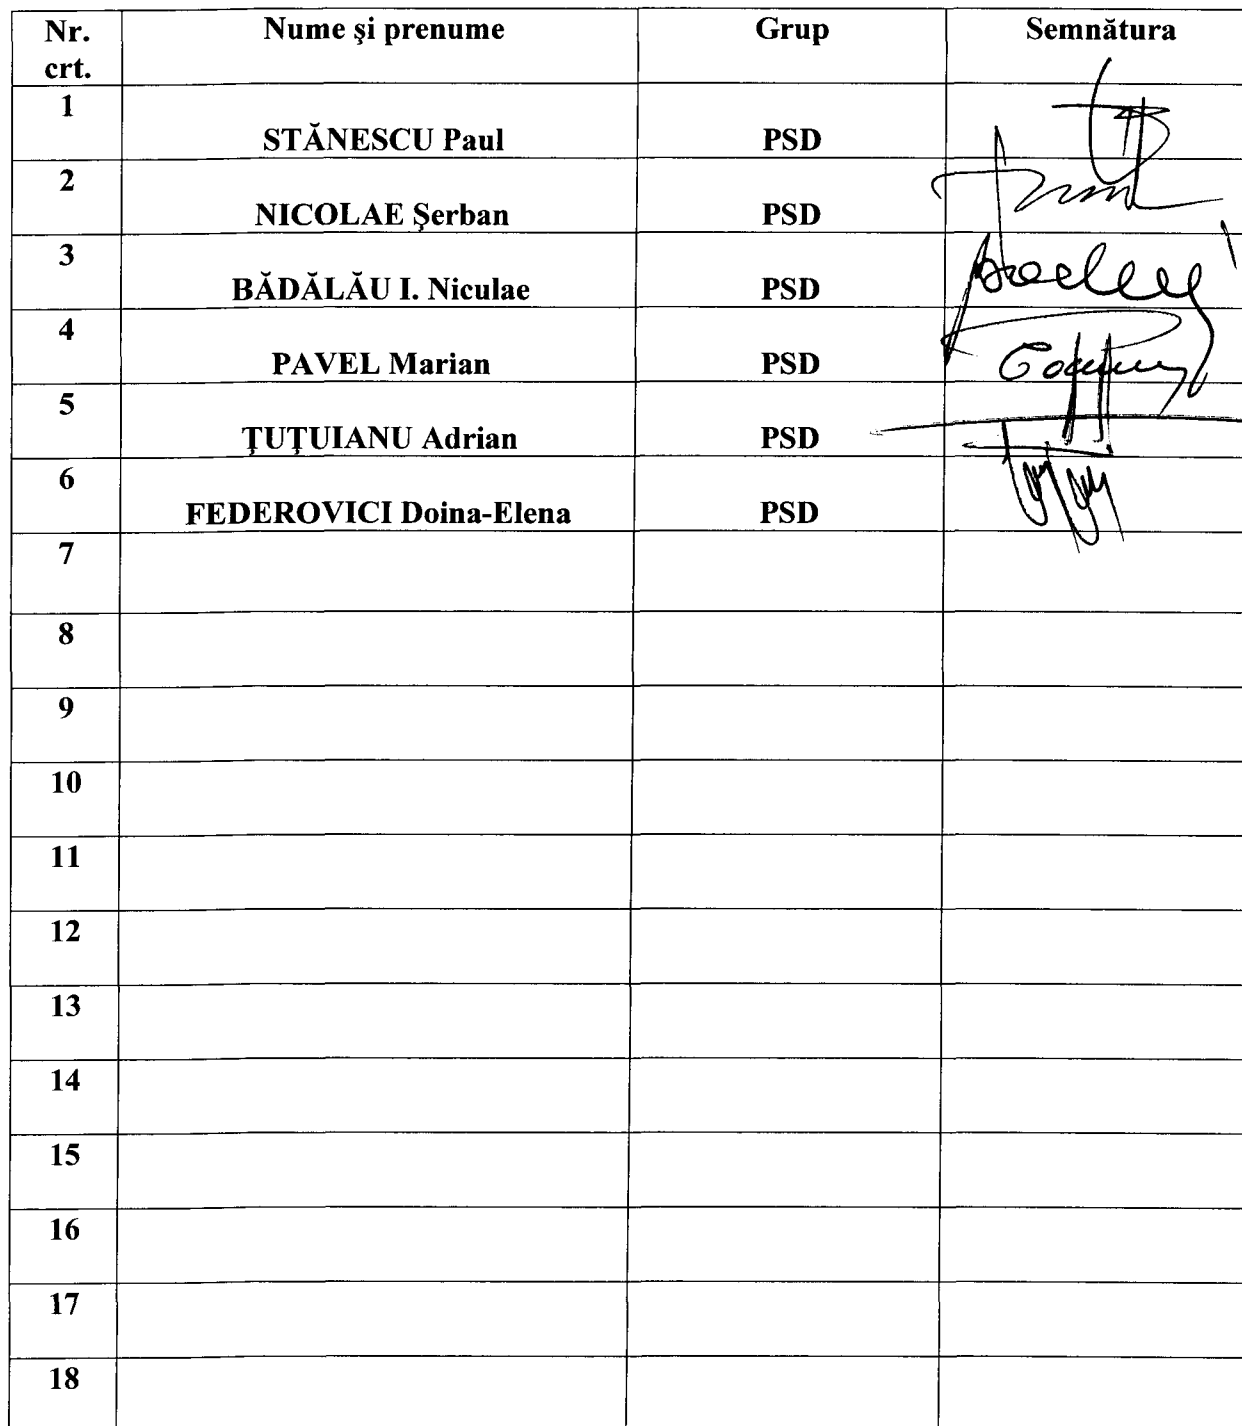 Nr. crt. Nume şi prenume Grup Semnătura
1 STĂNESCU Paul PSD
2 NICOLAE Şerban PSD
3 BĂDĂLĂU I. Niculae PSD
4 PAVEL Marian PSD
5 ŢUŢUIANU Adrian PSD
6 FEDEROVICI Doina-Elena PSD
7
8
9
10
11
12
13
14
15
16
17
18